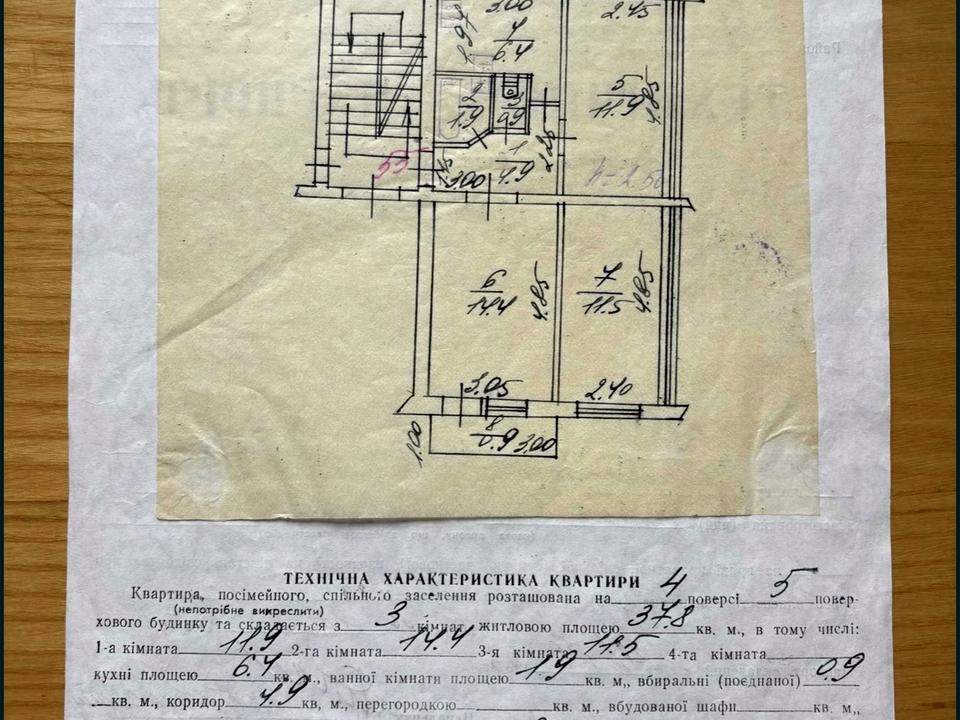 3.00 2.45
2.97 4
6.4
5
11.9 4.85
2
1.9 3
0.9
1
4.9 2.25
55 1.45 3.00 h=2.50
6
14.4 4.85 7
11.5 4.85
3.05 2.40
1.00 8
0.9 3.00
ТЕХНІЧНА ХАРАКТЕРИСТИКА КВАРТИРИ
Квартира, посімейного, спільного заселення розташована на 4 поверсі 5 повер-
(непотрібне викреслити)
хового будинку та складається з 3 кімнат житловою площею 37.8 кв. м., в тому числі:
1-а кімната 11.9 2-га кімната 14.4 3-я кімната 11.5 4-та кімната
кухні площею 6.4 кв. м., ванної кімнати площею 1.9 кв. м,, вбиральні (поєднаної) 0.9
кв. м., коридор 4.9 кв, м., перегородкою кв. м., вбудованої шафи кв. м,,